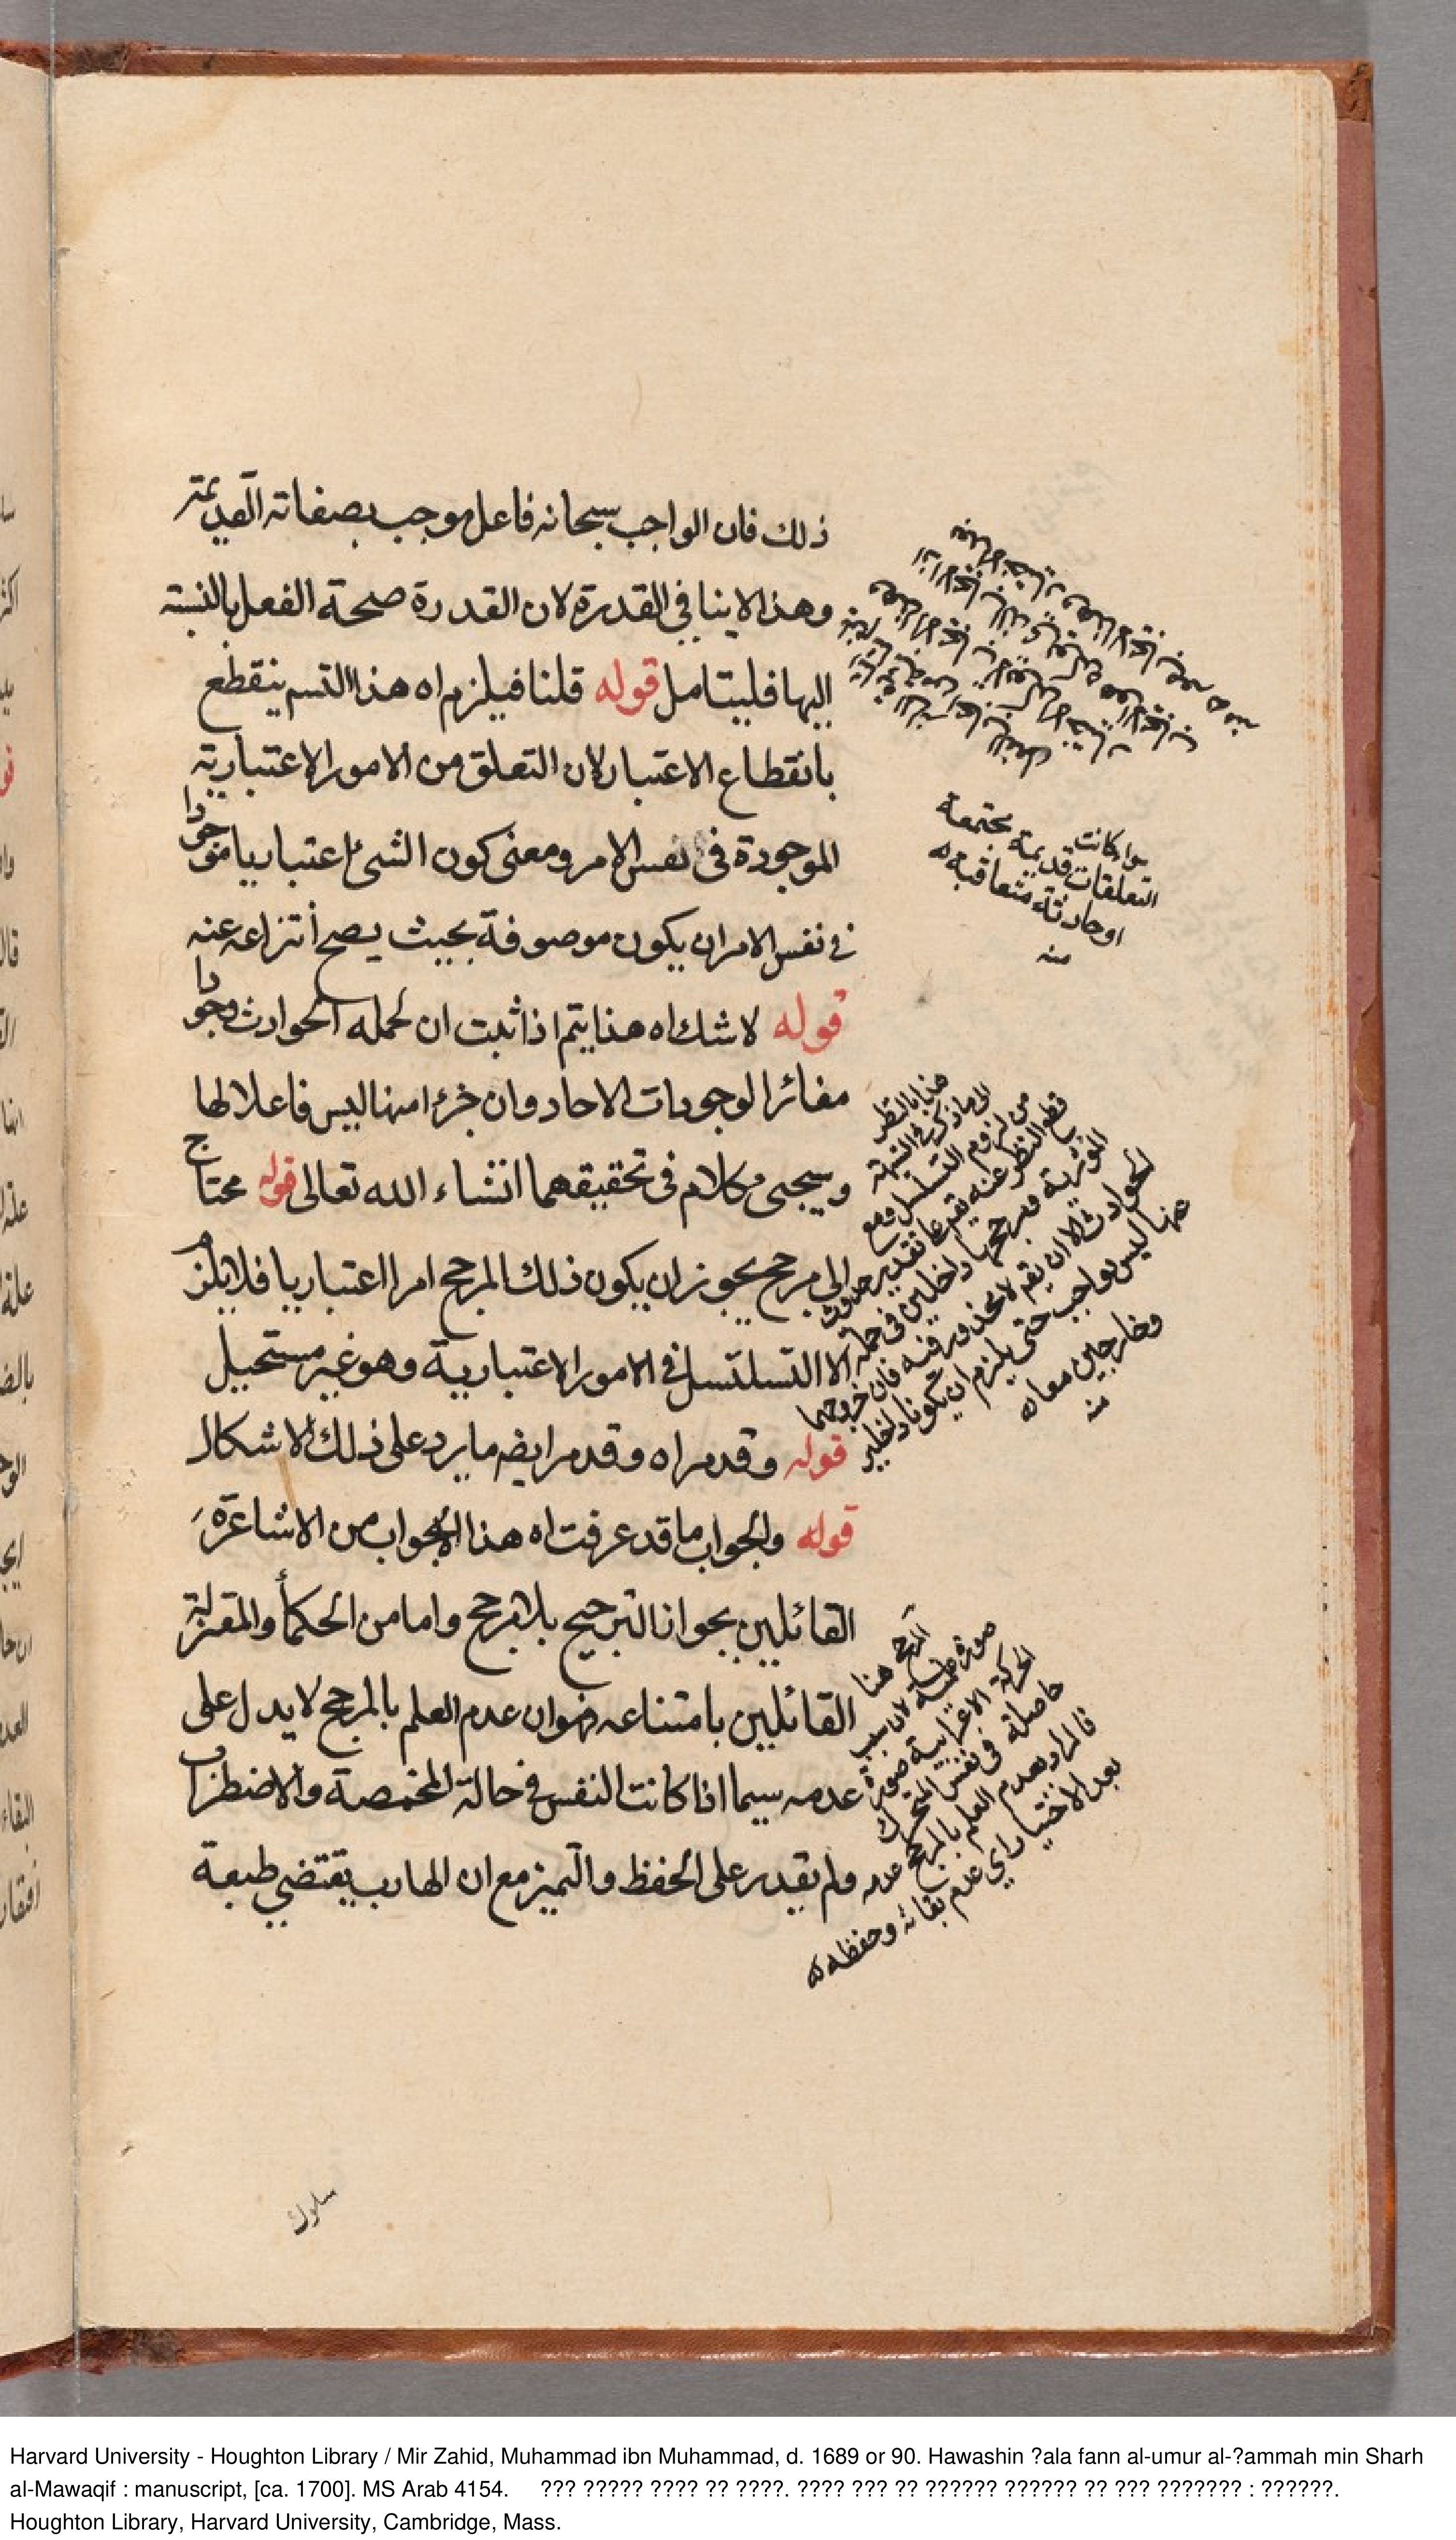 ذلك فان الواجب سبحانه فاعل موجب بصفاته القديمة
وهذا لاينافي القدرة لان القدرة صحة الفعل بالنسبة
اليها فليتامل قوله قلنا فيلزم اه هذا التسم ينقطع
بانقطاع الاعتبار لان التعلق من الامور الاعتبارية
الموجودة في نفس الامر ومعنى كون الشئ اعتباريا موجودا
في نفس الامر ان يكون موصوفة بحيث يصح انتزاعه عنه
قوله لا شك اه هذا يتم اذا ثبت ان لجمله الحوادث وجودا
مغائرا لوجودات الاحاد وان جزءا منها ليس فاعلا لها
وسيجئ كلام في تحقيقهما انشاء الله تعالى قوله محتاج
الى مرجح يجوز ان يكون ذلك المرجح امرا اعتباريا فلا يلزم
الا التسلسل في الامور الاعتبارية وهو غير مستحيل
قوله وقد مر اه وقد مر ايضه ما يرد على ذلك الاشكال
قوله والجواب ما قد عرفت اه هذا الجواب من الاشاعرة
القائلين بجواز الترجيح بلا مرجح واما من الحكمأ والمعتزلة
القائلين بامتناعه فهو ان عدم العلم بالمرجح لا يدل على
عدمه سيما اذا كانت النفس في حالة المخمصة والاضطراب
ولم يقدر على الحفظ والتميز مع ان الهارب يقتضي طبعه
سواء كانت
التعلقات قديمة مجتمعة
او حادثة متعاقبة ه
منه
هذا بالنظر
الى ما ذكر في الشبهة
من لزوم التسلسل ومع
قطع النظر عنه يتم على تقدير حدوث
المؤثرية ومرجحها داخلين في جملة
الحوادث الا ان يقم لا محذور فيه فان خروجهما
عنها ليس بواجب حتى يلزم ان يكونا داخلين
وخارجين معا ه
منه
المرجح هنا
صورة علمية لان سبب
الحركة الاختيارية صورة
حاصلة في نفس المتحرك
فالمراد بعدم العلم بالمرجح عدمه
بعد الاختيار اي عدم بقائه وحفظه ه
سلوك
Harvard University - Houghton Library / Mir Zahid, Muhammad ibn Muhammad, d. 1689 or 90. Hawashin ?ala fann al-umur al-?ammah min Sharh
al-Mawaqif : manuscript, [ca. 1700]. MS Arab 4154. ??? ????? ???? ?? ????. ???? ??? ?? ?????? ?????? ?? ??? ??????? : ??????.
Houghton Library, Harvard University, Cambridge, Mass.